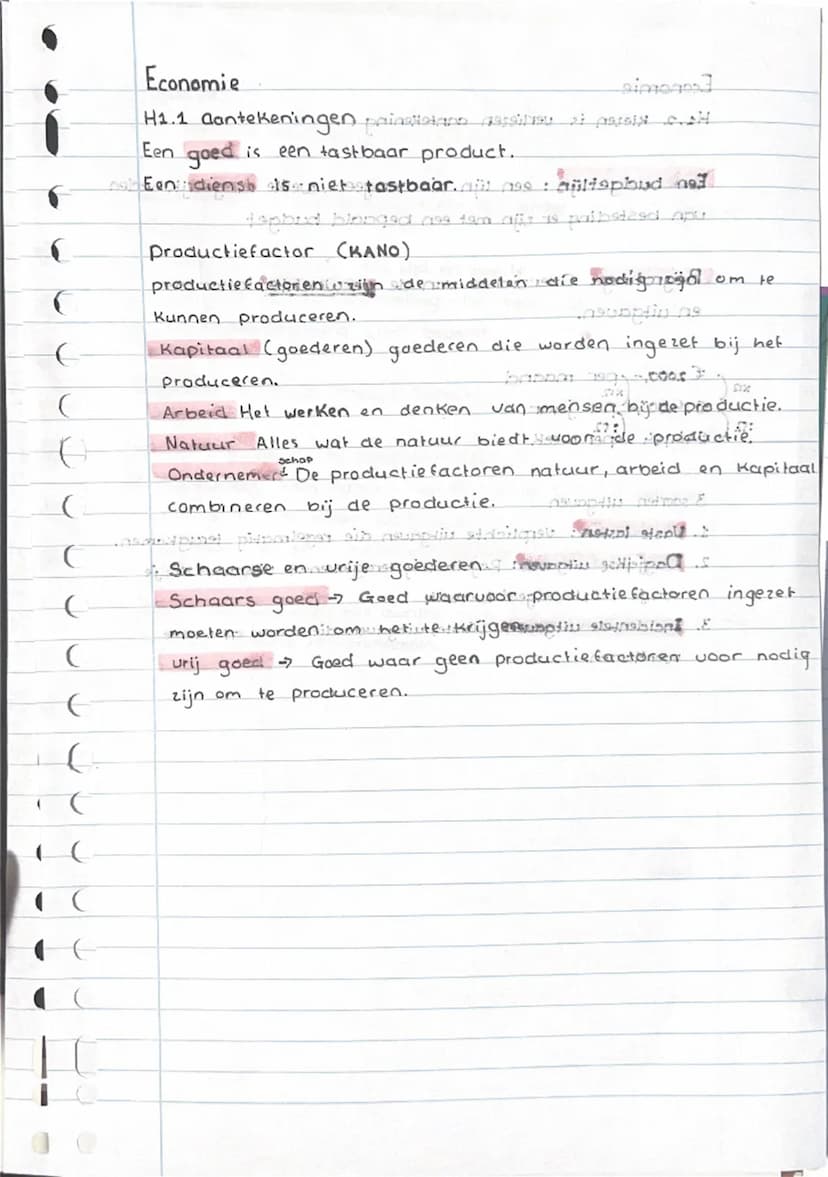 Economie
H1.1 aantekeningen
Een goed is een tastbaar product.
Een dienst is niet tastbaar.
Productiefactor (KANO)
productiefactoren zijn de middelen die nodig zijn om te
kunnen produceren.
Kapitaal (goederen) goederen die worden ingezet bij het
produceren.
Arbeid Het werken en denken van mensen bij de productie.
Natuur Alles wat de natuur biedt voor de productie.
Ondernemerschap De productiefactoren natuur, arbeid en kapitaal
combineren bij de productie.
Schaarse en vrije goederen
Schaars goed → Goed waarvoor productiefactoren ingezet
moeten worden om het te krijgen
vrij goed → Goed waar geen productiefactoren voor nodig
zijn om te produceren.